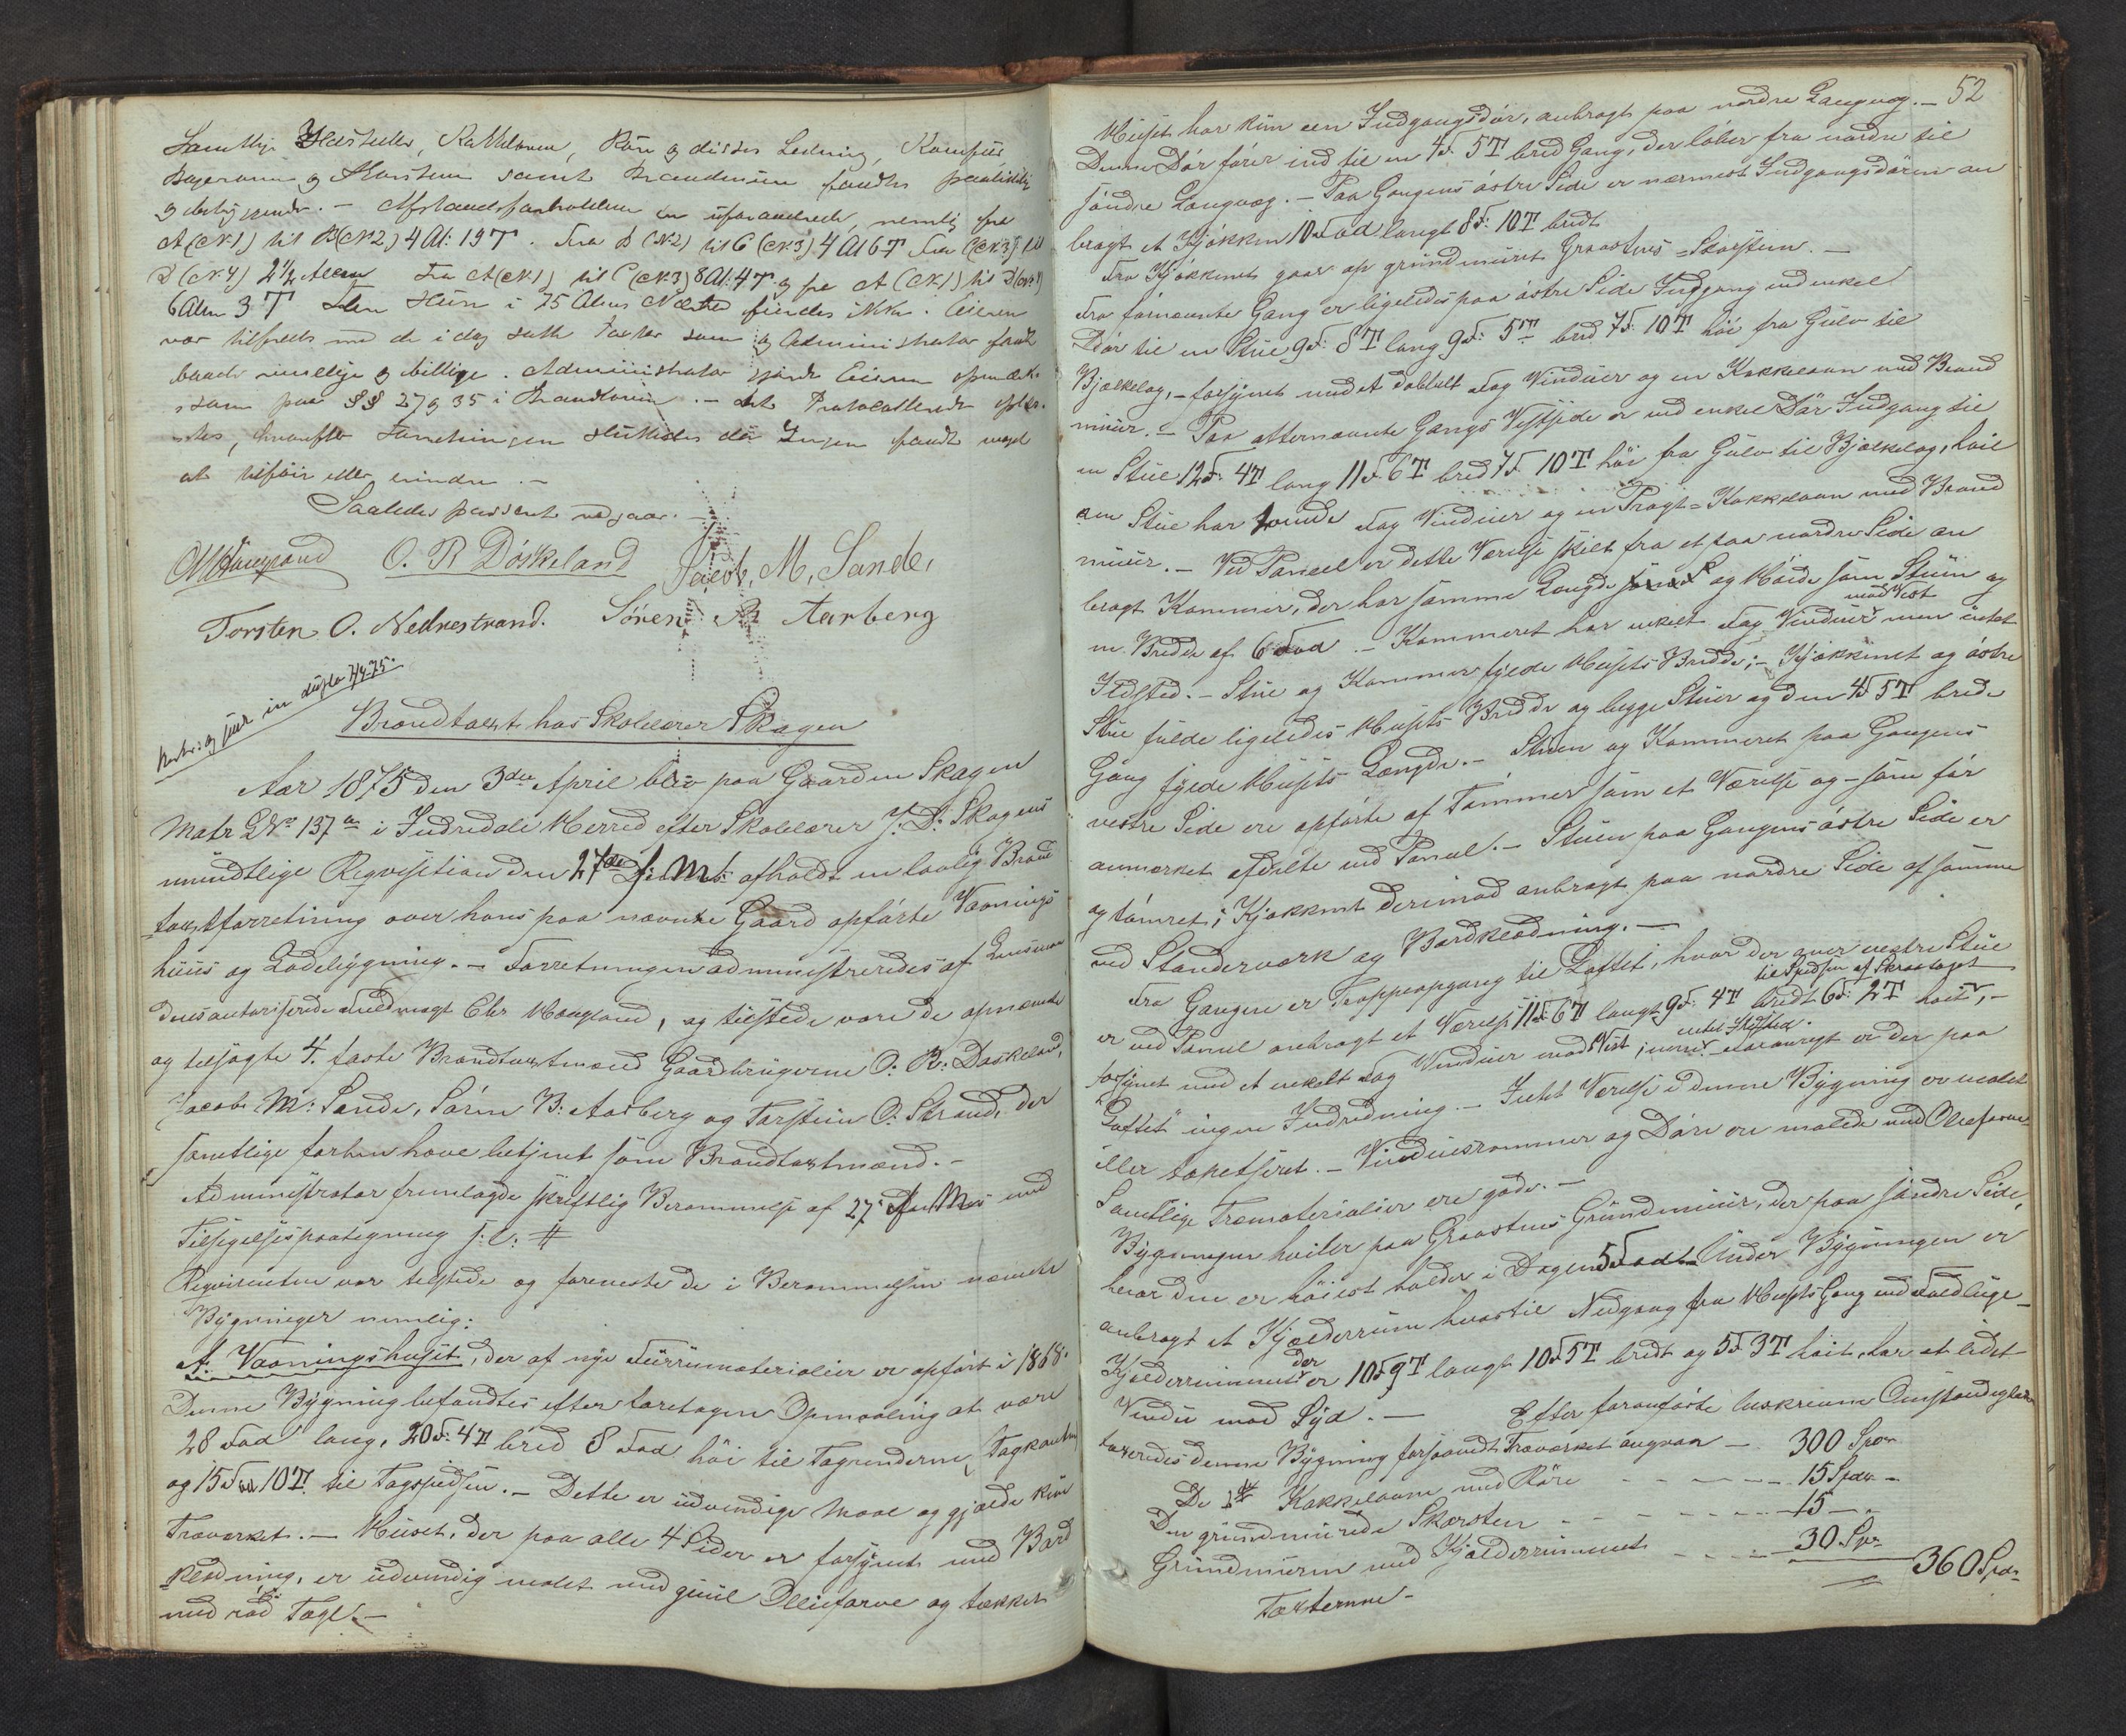 Samtlige Ildsteder, Kakkelovne, Rør og disses Ledning, Komfur
Bagerovn og Skorsten samt Brandmuren fandtes paalidelig
og betryggende. – Afstandsforholdene er uforandrede, nemlig fra
A (N.1) til B (N.2) 4 Al: 19 T. Fra B (N.2) til C (N.3) 4 Al 6 T Fra C (N.3) til
D (N.4) 2½ Alen Fra A (N.1) til C (N.3) 8 Al: 4 T. og fra A (N.1) til D (N.4)
6 Alen 3 T Den Huse i 75 Alens Nærhed findes ikke. Eieren
var tilfreds med de i dag satte Taxter som og Administrator fandt
baade rimelige og billige. Administrator gjorde Eieren opmærk-
som paa §§ 27 og 35 i Brandloven. – Det Protocollerede oplæ-
stes, hvorefter Forretningen sluttedes da Ingen fandt noget
at tilføie eller erindre. –
Saaledes passeret vedgaar. –
O. R Døskeland Jacob. M. Sande.
Torsten O. Nedrestrand. Søren B Aarberg
in duplo 7/4 75.
Brandtaxt hos Skolelærer Skagen
Aar 1875 den 3die April blev paa Gaarden Skagen
Matr L No 137 a i Indredale Herred efter Skolelærer J. D. Skagens
mundtlige Reqvisition den 27de f. M. afholdt en lovlig Brand
taxtforretning over hans paa nævnte Gaard opførte Vaanings
huus og Ladebygning. – Forretningen administreredes af Lensman
dens autoriserede Fuldmægt Chr Haugland, og tilstede vare de opnævnte
og tilsagte 4. faste Brandtaxtmænd Gaardbrugerne O: R: Døskeland,
Jacob M: Sande, Søren B: Aarberg og Torstein O: Strand, der
samtlige forhen have betjent som Brandtaxtmænd. –
Administrator fremlagde skriftlig Berammelse af 27 f. M. med
Tilsigelsespaategning s. l: #
Reqvirenten var tilstede og foreviste de i Berammelsen nævnte
Bygninger nemlig:
A: Vaaningshuset, der af nye Furrumaterialier er opført i 1868.
Denne Bygning befandtes efter foretagen Opmaaling at være
28 Fod lang, 20 F: 4 T bred 8 Fod høi til Tagrenderne, Tagkanten
og 15 Fod 10 T. til Tagspidsen. – Dette er udvendige Maal og gjælde kun
Træværket. – Huset, der paa alle 4 Sider er forsynet med Bord
klædning, er udvendig malet med guul Oliefarve og tækket
med rød Tagl. –
52
Huset har kun een Indgangsdør, anbragt paa nordre Langvæg. –
Denne Dør fører ind til en 4 F. 5 T bred Gang, der løber fra nordre til
søndre Langvæg. – Paa Gangens østre Side er nærmest Indgangsdøren an
bragt et Kjøkken 10 Fod langt 8 F: 10 T bredt
Fra Kjøkkenet gaar op grundmuret Graastens-Skorsten. –
Fra fornævnte Gang er ligeledes paa østre Side Indgang ved enkel
Dør til en Stue 9 F: 8 T lang 9 F: 5 T bred 7 F: 10 T høi fra Gulv til
Bjælkelag, – forsynet med et dobbelt Fag Vinduer og en Kakkelovn med Brand
muur. – Paa oftenævnte Gangs Vestside er ved enkel Dør Indgang til
en Stue 12 F: 4 T lang 11 F. 6 T bred 7 F. 10 T høi fra Gulv til Bjælkelag, hvil
ken Stue har tvende Fag Vinduer og en Pragt-Kakkelovn med Brand
muur. – Ved Paneel er dette Værelse skilt fra et paa nordre Side an
bragt Kammer, der har samme Længde og Høide som Stuen og
en Bredde af 6 Fod. – Kammeret har enkelt Fag Vinduer mod Vest men intet
Ildsted. – Stue og Kammer fylde Husets Bredde; – Kjøkkenet og østre
Stue fylde ligeledes Husets Bredde og begge Stuer og den 4 F 5 T brede
Gang fylde Husets Længde. – Stuen og Kammeret paa Gangens
vestre Side ere opførte af Tømmer som et Værelse og – som før
anmærket afdelte ved Paneel. – Stuen paa Gangens østre Side er
og tømret; Kjøkkenet derimod anbragt paa nordre Side af samme
ved Standerværk og Bordklædning. –
Fra Gangen er Trappeopgang til Loftet, hvor der over vestre Stue
er ved Paneel anbragt et Værelse 11 F. 6 T langt 9 F: 4 T bredt 6 F: 2 T høit til Spidsen af Skraataget, –
forsynet med et enkelt Fag Vinduer mod Vest; men intet Ildsted. Forøvrigt er der paa
Loftet ingen Indredning. – Intet Værelse i denne Bygning er malet
eller tapetseret. – Vinduesrammer og Døre ere malede med Oliefarve
Samtlige Træmaterialier ere gode. –
Bygningen hviler paa Graastens Grundmuur, der paa søndre Side,
hvor den er høiest holder i Dagen 5 Fod. Under Bygningen er
anbragt et Kjælderrum hvortil Nedgang fra Husets Gang ved Faldluge –
Kjælderrummet der er 10 F 9 T langt 10 F 5 T bredt og 5 F 3 T høit, har et lidet
Vindu mod Syd. – Efter foranførte beskrevne Omstændigheder
taxeredes denne Bygning forsaavidt Træværket angaar – 300 Spdr
De 2de Kakkelovne med Røre – – – – – – – 15 Spdr –
Den grundmurede Skorsten – – – – – – – 15 – „
Grundmuren med Kjælderrummet – – – – 30 Spr
360 Spdr
Taxterne –